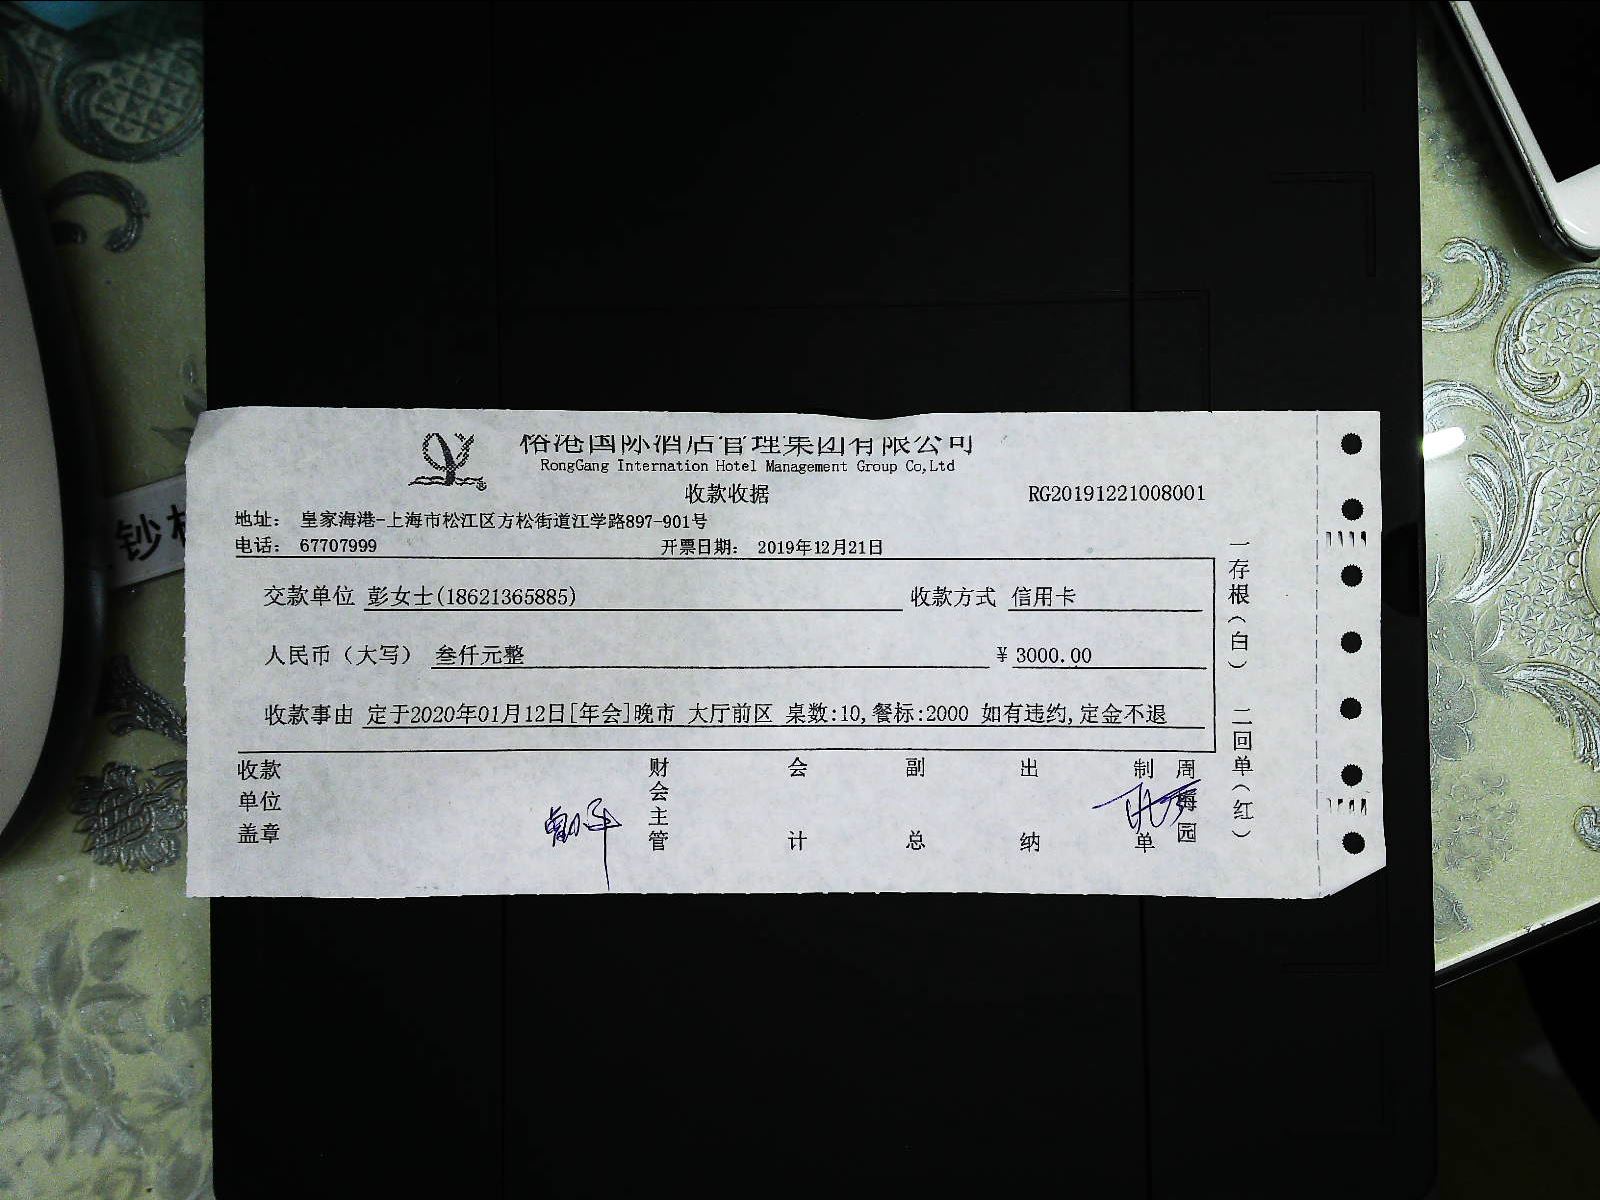 榕港国际酒店管理集团有限公司
RongGang Internation Hotel Management Group Co,Ltd
收款收据
RG20191221008001
地址： 皇家海港-上海市松江区方松街道江学路897-901号
电话： 67707999
开票日期： 2019年12月21日
交款单位 彭女士(18621365885)
收款方式 信用卡
人民币（大写） 叁仟元整
¥ 3000.00
收款事由 定于2020年01月12日[年会]晚市 大厅前区 桌数:10,餐标:2000 如有违约,定金不退
收款单位盖章
财会主管
会计
副总
出纳
制单
周梅园
一存根（白）
二回单（红）
钞